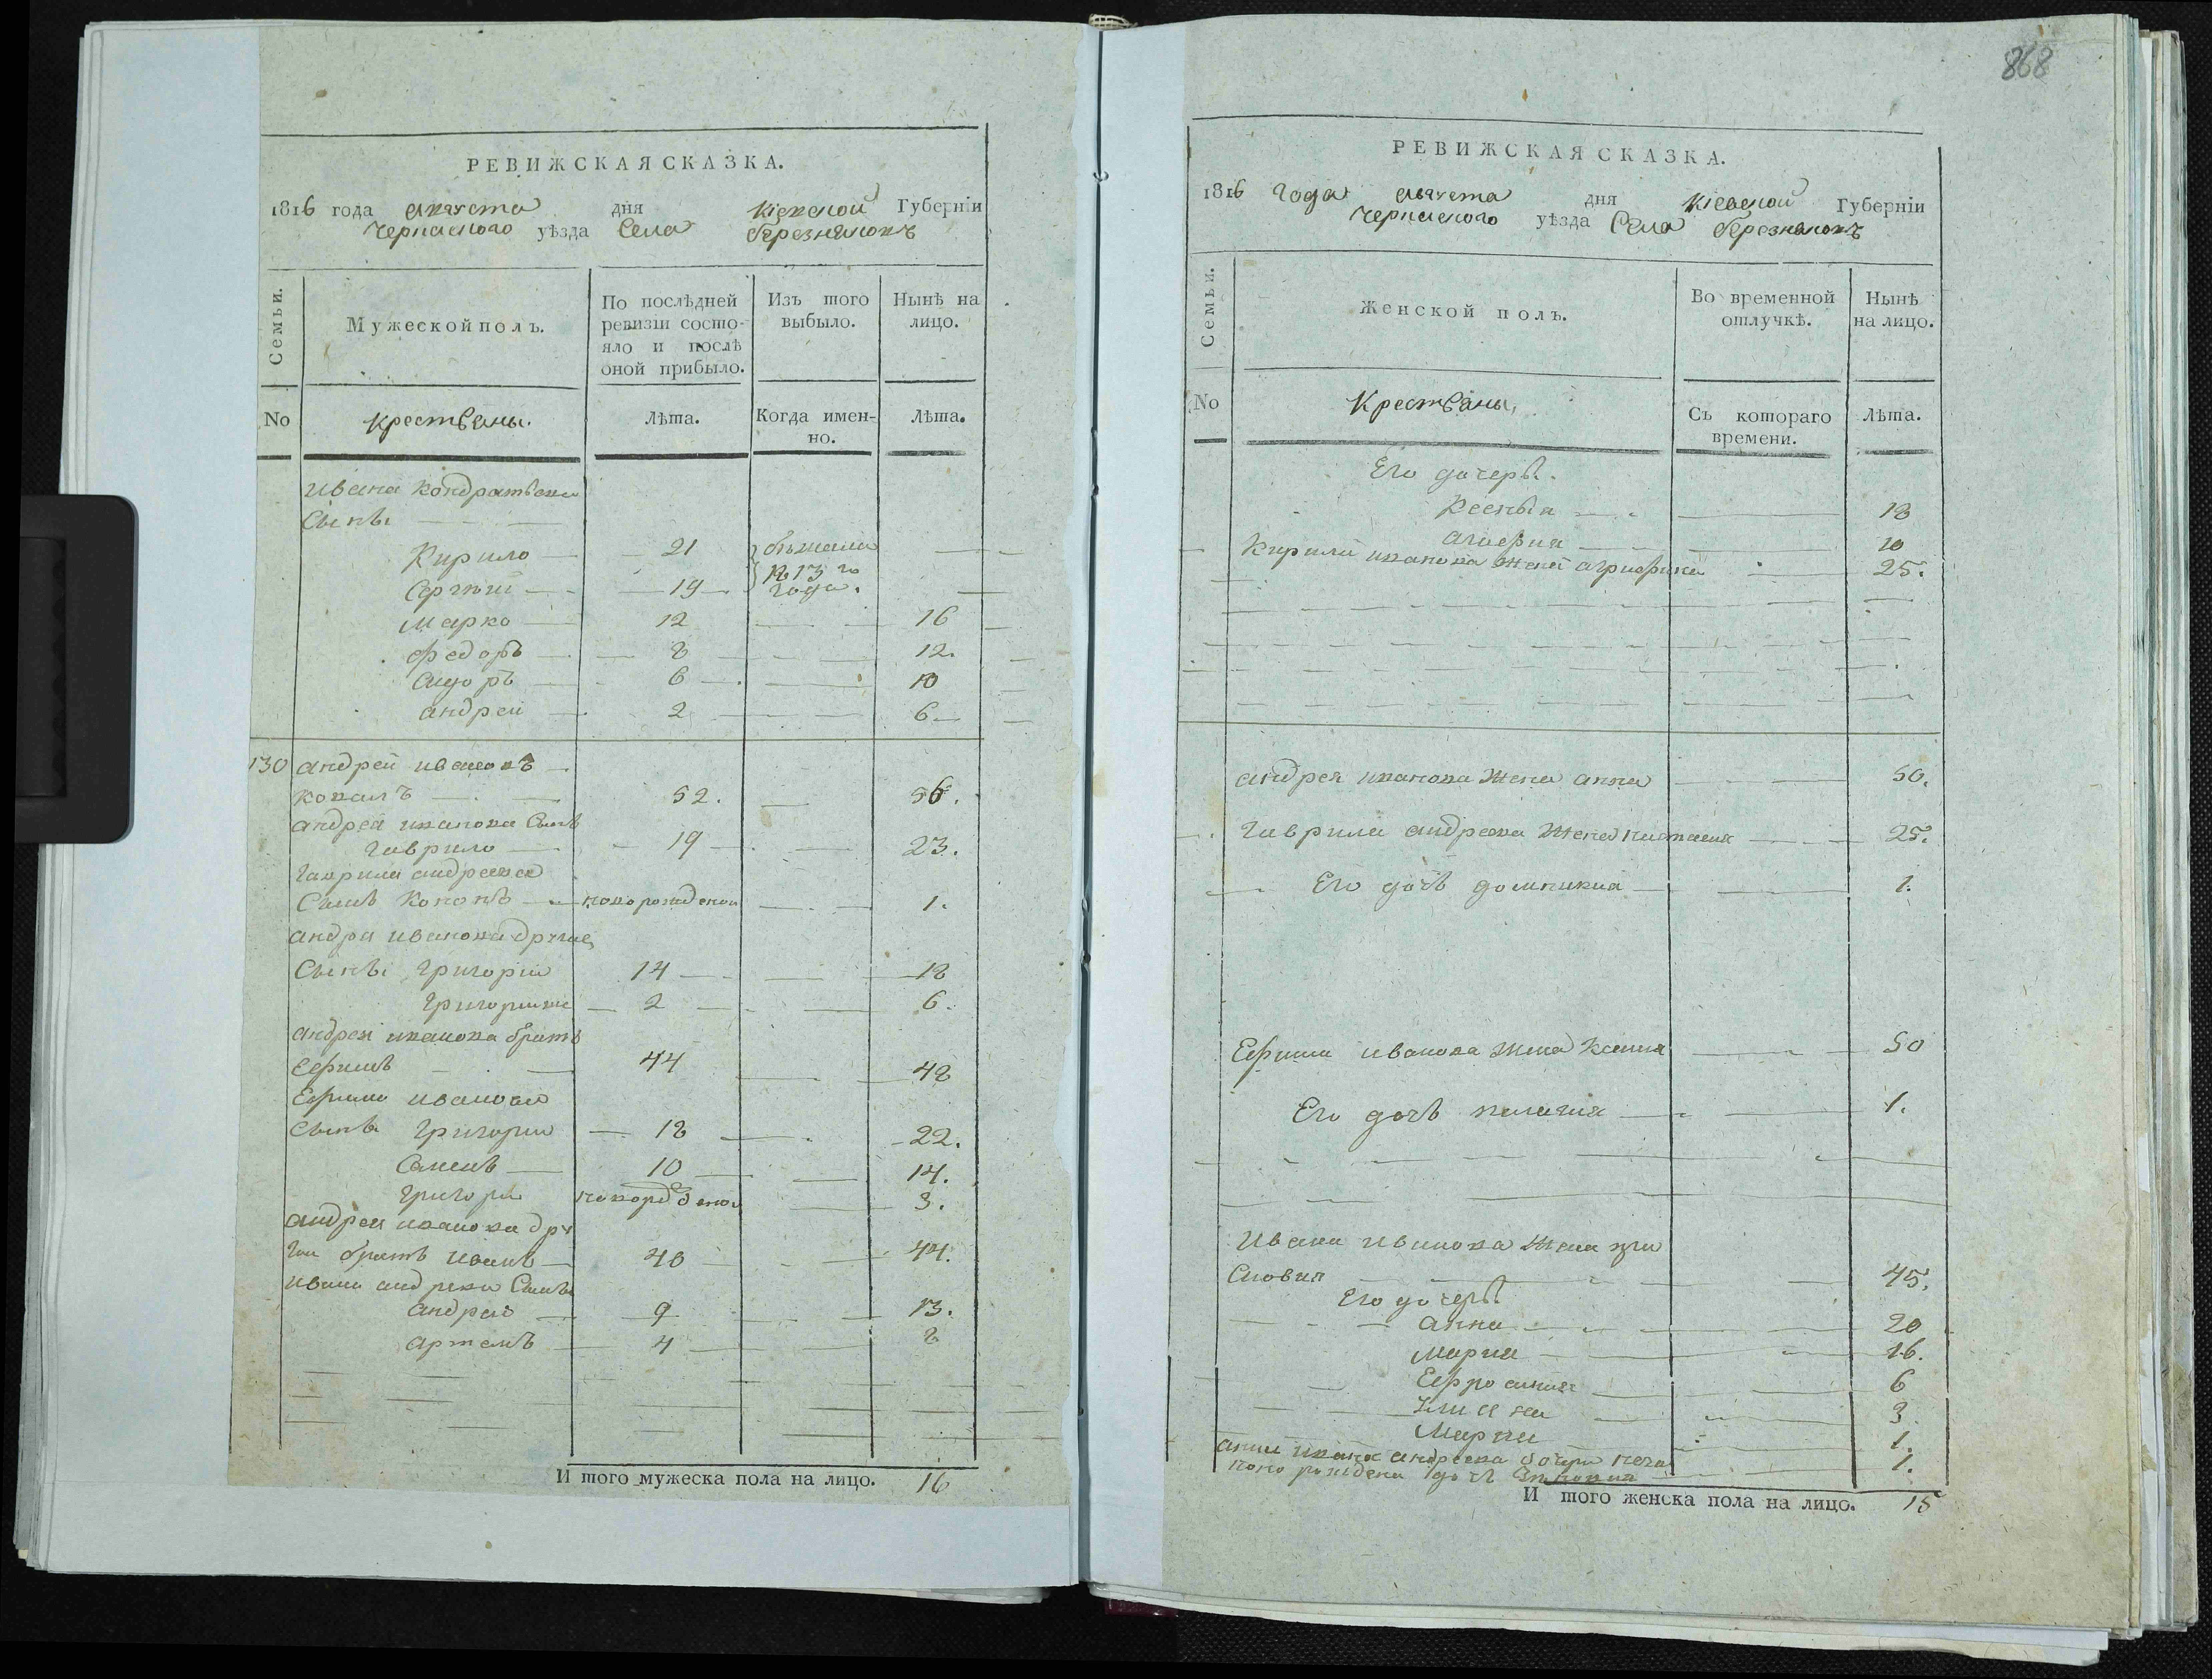 868
РЕВИЖСКАЯ СКАЗКА.
1816 года августа дня Кіевской Губерніи
Черкаского уѣзда Села березняковъ
Семьи.
Мужеской полъ.
По послѣдней ревизіи состо-
яло и послѣ оной прибыло.
Изъ того выбыло.
Нынѣ на лицо.
No крестьяны. Лѣта. Когда имен-
но. Лѣта.
Ивана Кондратьева
Сынъі
Кирило 21 бѣжали
Сергѣй 19 1813 го года.
Марко 12 16
Федоръ 8 12.
Сидоръ 6 10
андрей 2 6
130 андрей ивановъ
ковалъ 52. 56.
андрея иванова Сынъ
гаврило 19 23.
гаврила андреева
Сынъ Кононъ новорожденой 1.
андрея иванова другие
Сынъі григорій 14 18
григорій же 2 6.
андрея иванова братъ
Ефимъ 44 48
Ефима иванова
Сынъі григорий 18 22.
Семенъ 10 14.
григорий новорожденой 3.
андрея иванова дру
гий братъ иванъ 40 44.
ивана Сынъі
андрей 9 13.
артемъ 4 8
И того мужеска пола на лицо. 16
РЕВИЖСКАЯ СКАЗКА.
1816 года августа дня Кіевской Губерніи
Черкаского уѣзда Села березняковъ
Семьи.
Женской полъ.
Во временной отлучкѣ.
Нынѣ на лицо.
No Крестьяны, Съ котораго
времени. Лѣта.
Его дочерѣ.
Ксенѣя 18
10
Кирила иванова жена агриофина 25.
андрея иванова жена анна 50.
гаврила андреева жена настасия 25.
Его дочъ домникия 1.
Ефима иванова жена Ксения 50
Его дочъ пелагия 1.
ивана иванова жена
45.
Его дочерѣ
анна 20
Мария 16.
Ефросиния 6
3
Мария 1.
дочери
ново рождена дочъ 1.
И того женска пола на лицо. 15